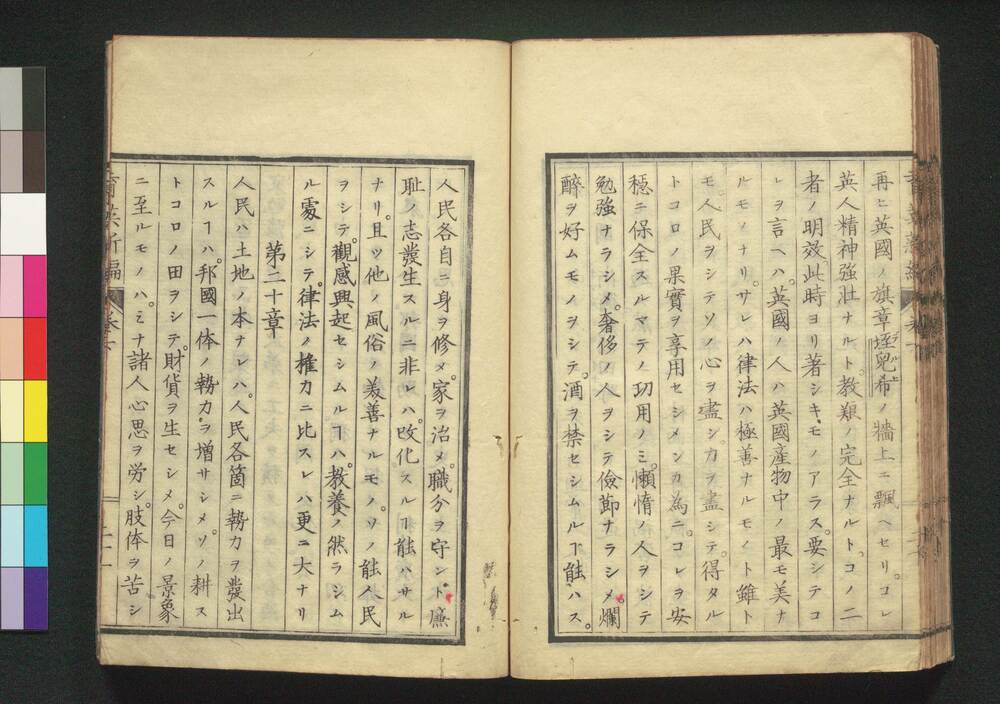 再ヒ英國ノ旗章垤兒希ノ牆上ニ飄ヘセリ。コレ
デルヒ
英人精神強壯ナルト。教艱ノ完全ナルト。コノ二
者ノ明效此時ヨリ著シキモノアラス。要シテコ
レヲ言ヘハ。英國ノ人ハ英國産物中ノ最モ美ナ
ルモノナリ。サレハ律法ハ極善ナルモノト雖ト
モ。人民ヲシテソノ心ヲ盡シ。力ヲ盡シテ。得タル
トコロノ果實ヲ享用セシメンカ為ニ。コレヲ安
穏ニ保全スルマテノ功用ノミ。懶惰ノ人ヲシテ
勉強ナラシメ。奢侈ノ人ヲシテ儉節ナラシメ爛
醉ヲ好ムモノヲシテ。酒ヲ禁セシムルヿ能ハス。
人民各自ニ身ヲ修メ。家ヲ治メ。職分ヲ守ント廉
耻ノ志發生スルニ非レハ。改化スルヿ能ハサル
ナリ。且ツ他ノ風俗ノ美善ナルモノ。ソノ能人民
ヲシテ。觀感興起セシムルヿハ。教養ノ然ラシム
ル䖏ニシテ。律法ノ權力ニ比スレハ更ニ大ナリ
第二十章
人民ハ土地ノ本ナレハ。人民各箇ニ勢力ヲ發出
スルヿハ。邦國一体ノ勢力ヲ増サシメ。ソノ耕ス
トコロノ田ヲシテ。財貨ヲ生セシメ。今日ノ景象
ニ至ルモノハ。ミナ諸人心思ヲ労シ。肢体ヲ苦シ